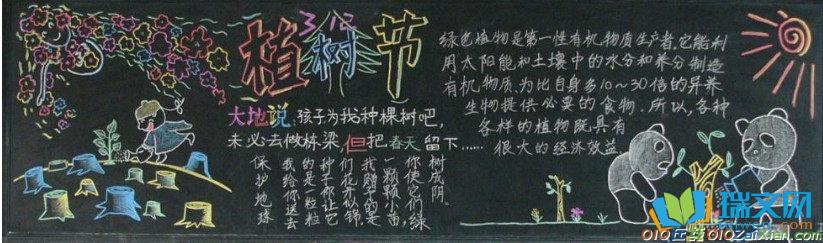 3.12
植树节
大地说:孩子为我种棵树吧,
未必去做栋梁但把春天留下……
保护地球
我给你送去
的是一粒粒
种子你让它
们花开似锦
我赠的是
一颗颗小苗
你使它们绿
树成阴
绿色植物是第一性有机物质生产者。它能利
用太阳能和土壤中的水分和养分制造
有机物质、为比自身多10~30倍的异养
生物提供必要的食物。所以,各种
各样的植物既具有
很大的经济效益
瑞文网
QIQZaiXian.com